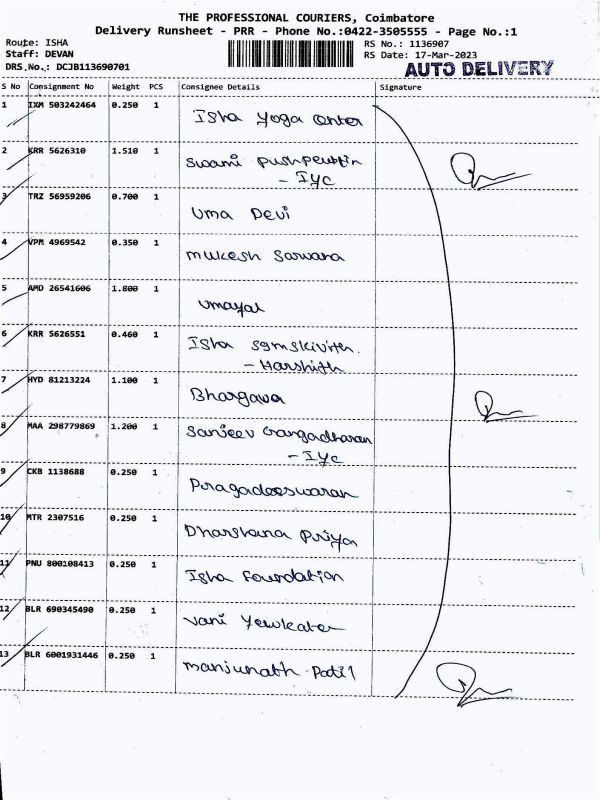 THE PROFESSIONAL COURIERS, Coimbatore
Delivery Runsheet - PRR - Phone No.:0422-3505555 - Page No.:1
Route: ISHA
Staff: DEVAN
DRS.No.: DCJB113690701
RS No.: 1136907
RS Date: 17-Mar-2023
AUTO DELIVERY
S No Consignment No Weight PCS Consignee Details Signature
1 IXM 503242464 0.250 1 Isha Yoga Center
2 KRR 5626310 1.510 1 Swami Pushpenttin
- IYC
3 TRZ 56959206 0.700 1 Uma Devi
4 VPM 4969542 0.350 1 Mukesh Sarwara
5 AMD 26541606 1.800 1 Umayal
6 KRR 5626551 0.460 1 Isha
- Harshith
7 HYD 81213224 1.100 1 Bhargava
8 MAA 298779869 1.200 1 Sanjeev Gangadharan
- IYC
9 CKB 1138688 0.250 1 Pragadeeswaran
10 MTR 2307516 0.250 1 Dharshana Priya
11 PNU 800108413 0.250 1 Isha Foundation
12 BLR 690345490 0.250 1 Vani
13 BLR 6001931446 0.250 1 Manjunath Patil